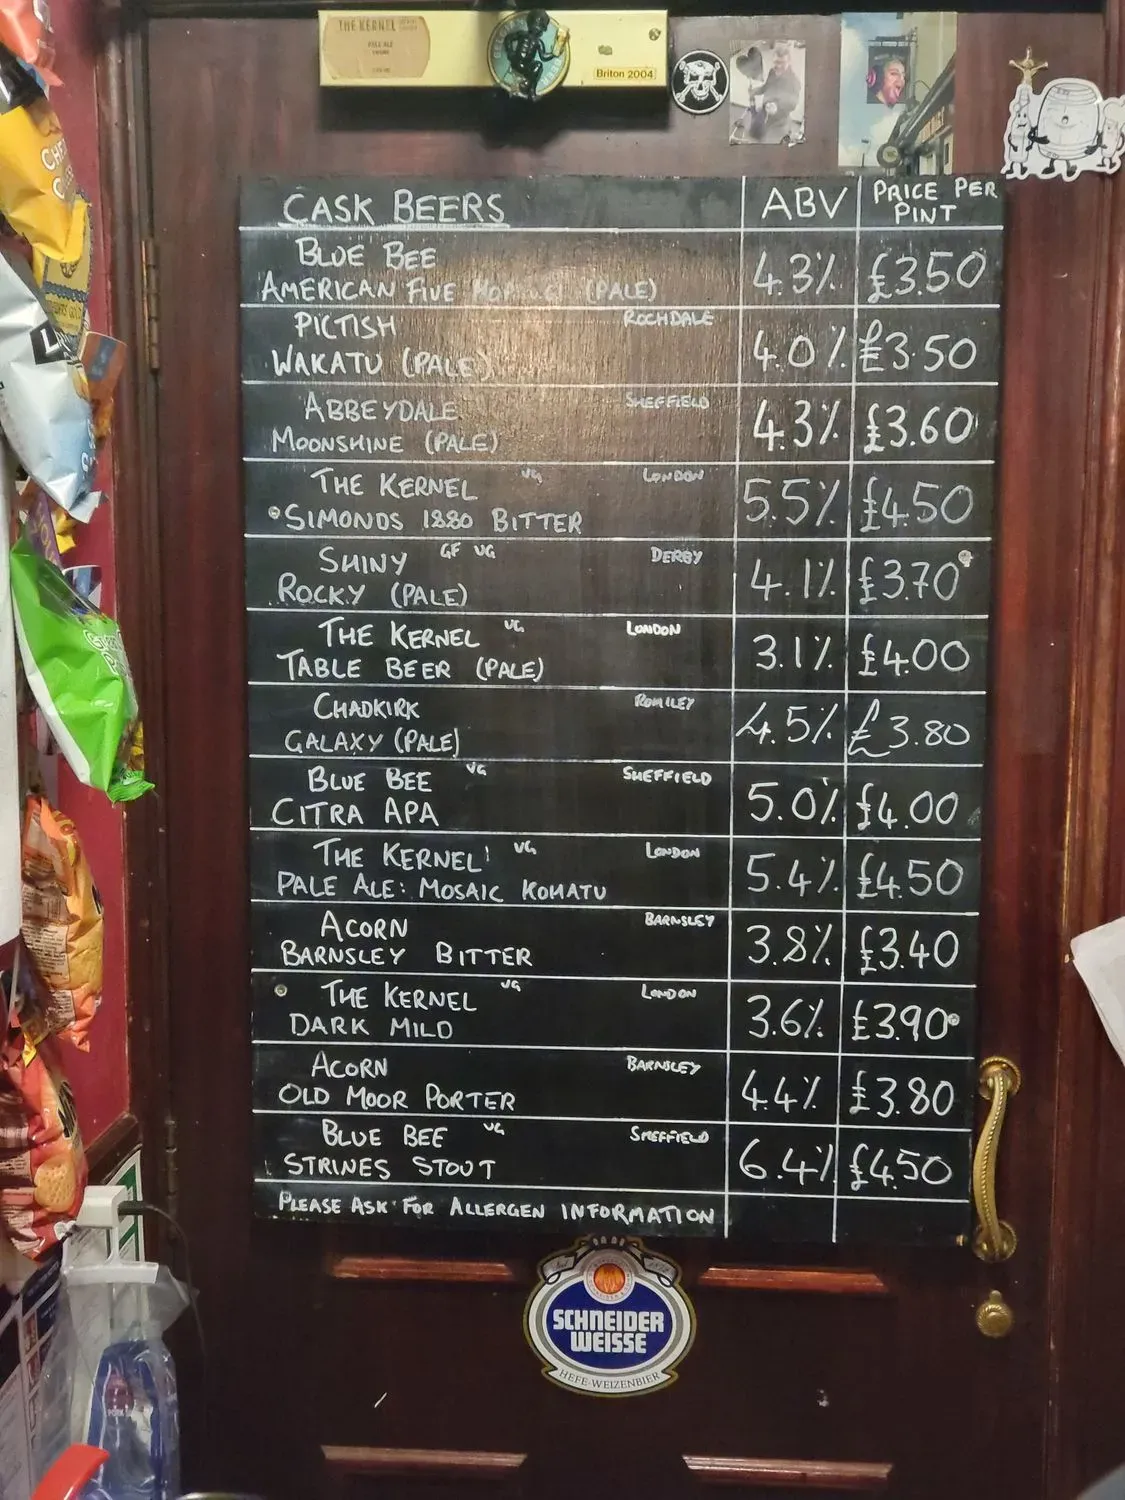 THE KERNEL
PALE ALE
Briton 2004
CASK BEERS
ABV
PRICE PER
PINT
BLUE BEE
AMERICAN FIVE (PALE)
4.3%
£3.50
PICTISH
ROCHDALE
WAKATU (PALE)
4.0%
£3.50
ABBEYDALE
SHEFFIELD
MOONSHINE (PALE)
4.3%
£3.60
THE KERNEL VG
LONDON
SIMONDS 1880 BITTER
5.5%
£4.50
SHINY GF VG
DERBY
ROCKY (PALE)
4.1%
£3.70
THE KERNEL VG
LONDON
TABLE BEER (PALE)
3.1%
£4.00
CHADKIRK
ROMILEY
GALAXY (PALE)
4.5%
£3.80
BLUE BEE VG
SHEFFIELD
CITRA APA
5.0%
£4.00
THE KERNEL VG
LONDON
PALE ALE: MOSAIC KOHATU
5.4%
£4.50
ACORN
BARNSLEY
BARNSLEY BITTER
3.8%
£3.40
THE KERNEL VG
LONDON
DARK MILD
3.6%
£3.90
ACORN
BARNSLEY
OLD MOOR PORTER
4.4%
£3.80
BLUE BEE VG
SHEFFIELD
STRINES STOUT
6.4%
£4.50
PLEASE ASK FOR ALLERGEN INFORMATION
SCHNEIDER
WEISSE
HEFE-WEIZENBIER